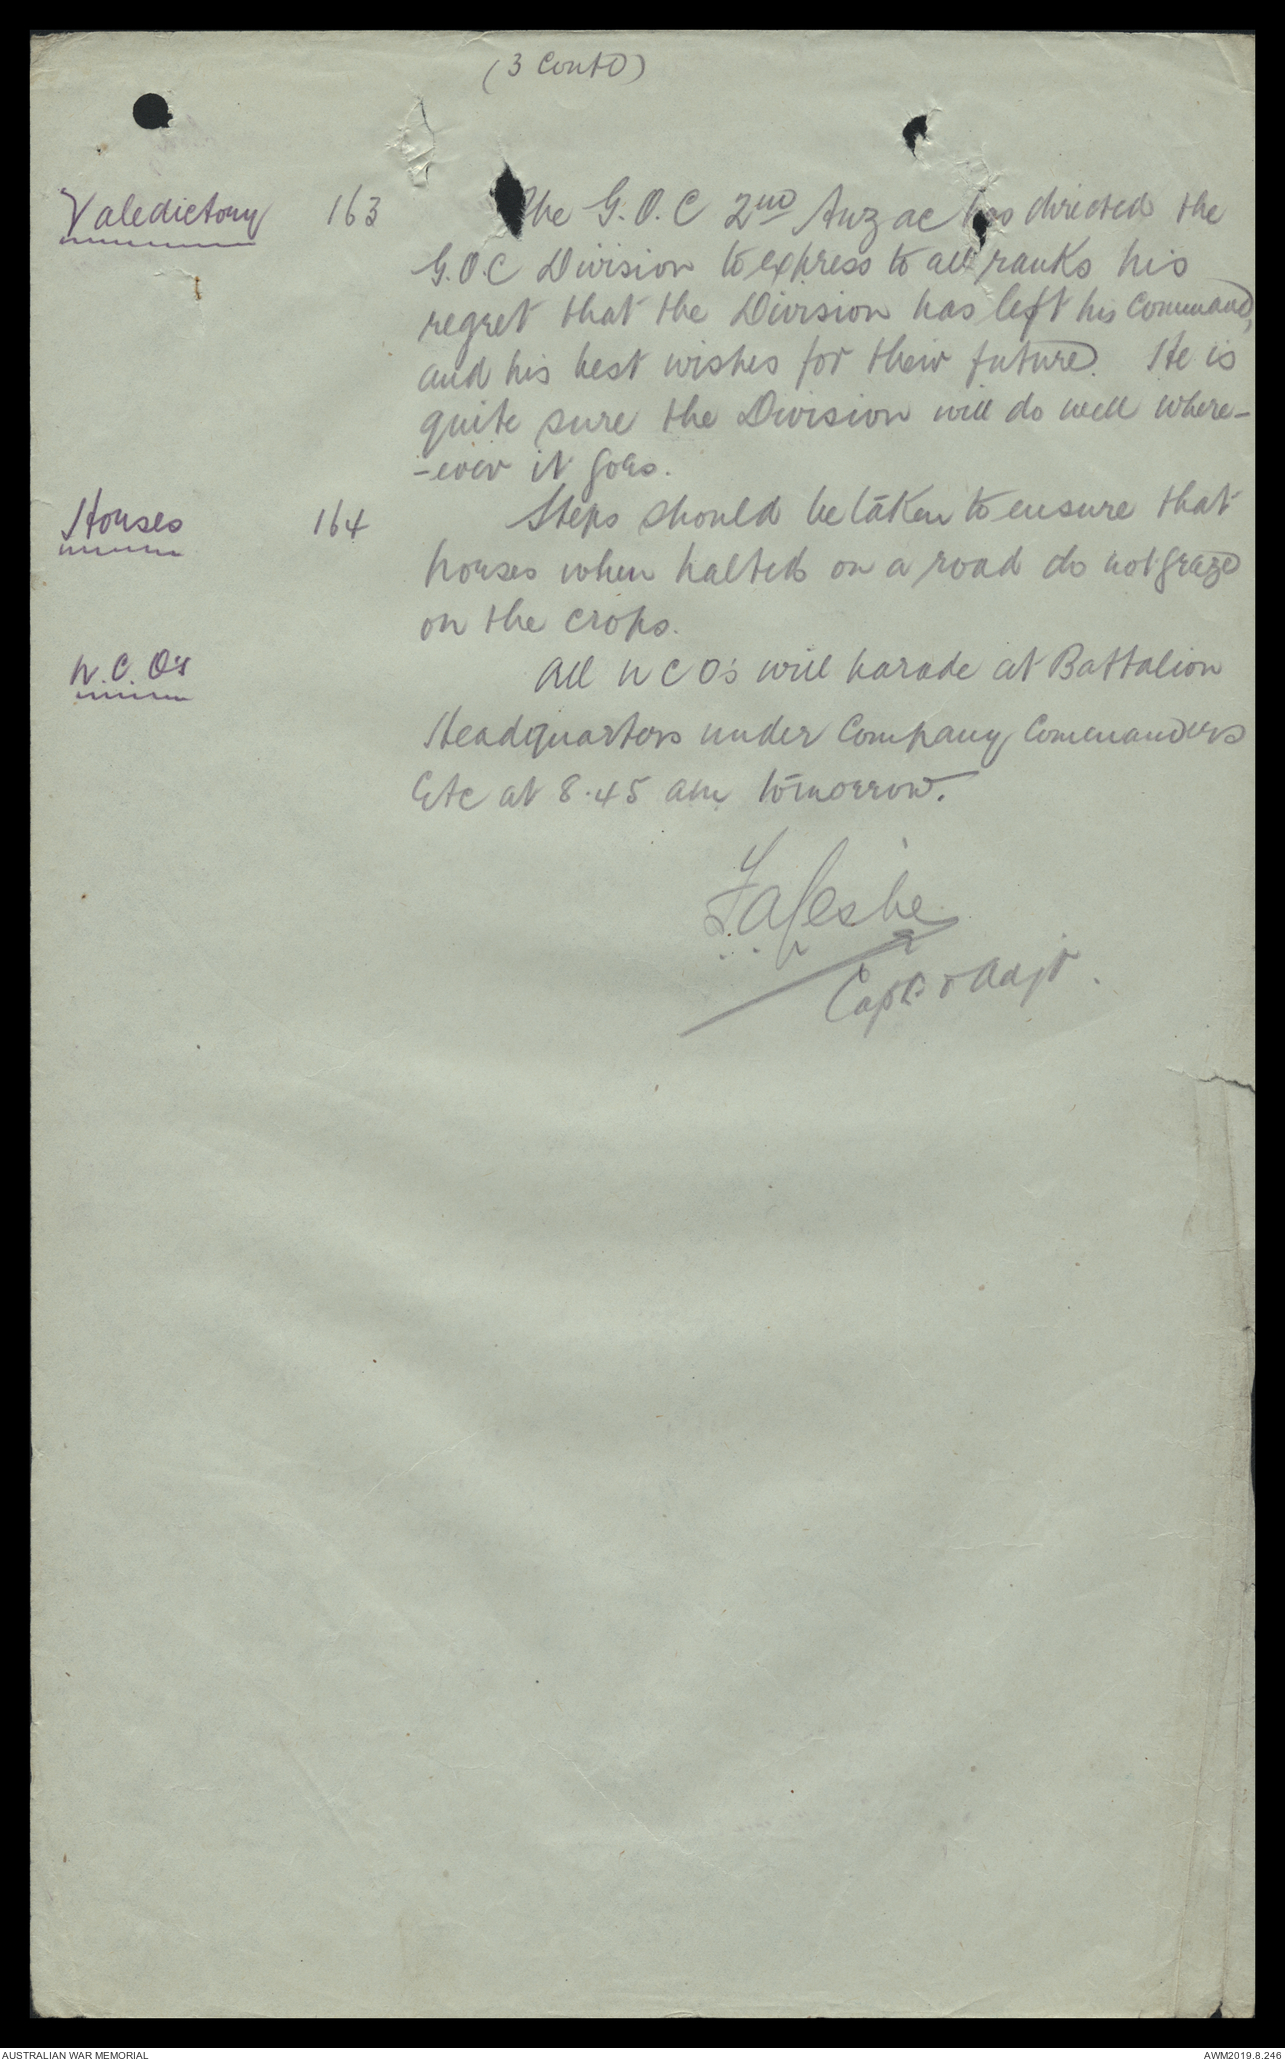 (3 Contd)
Valedictory 163 The G.O.C 2nd Anzac has directed the
G.O.C Division to express to all ranks his
regret that the Division has left his Command,
and his best wishes for their future. He is
quite sure the Division will do well where-
-ever it goes.
Horses 164 Steps should be taken to ensure that
horses when halted on a road do not graze
on the crops.
N.C.O's All N C O's will parade at Battalion
Headquarters under Company Commanders
Etc at 8.45 am tomorrow.
Capt & Adjt.
AUSTRALIAN WAR MEMORIAL AWM2019.8.246